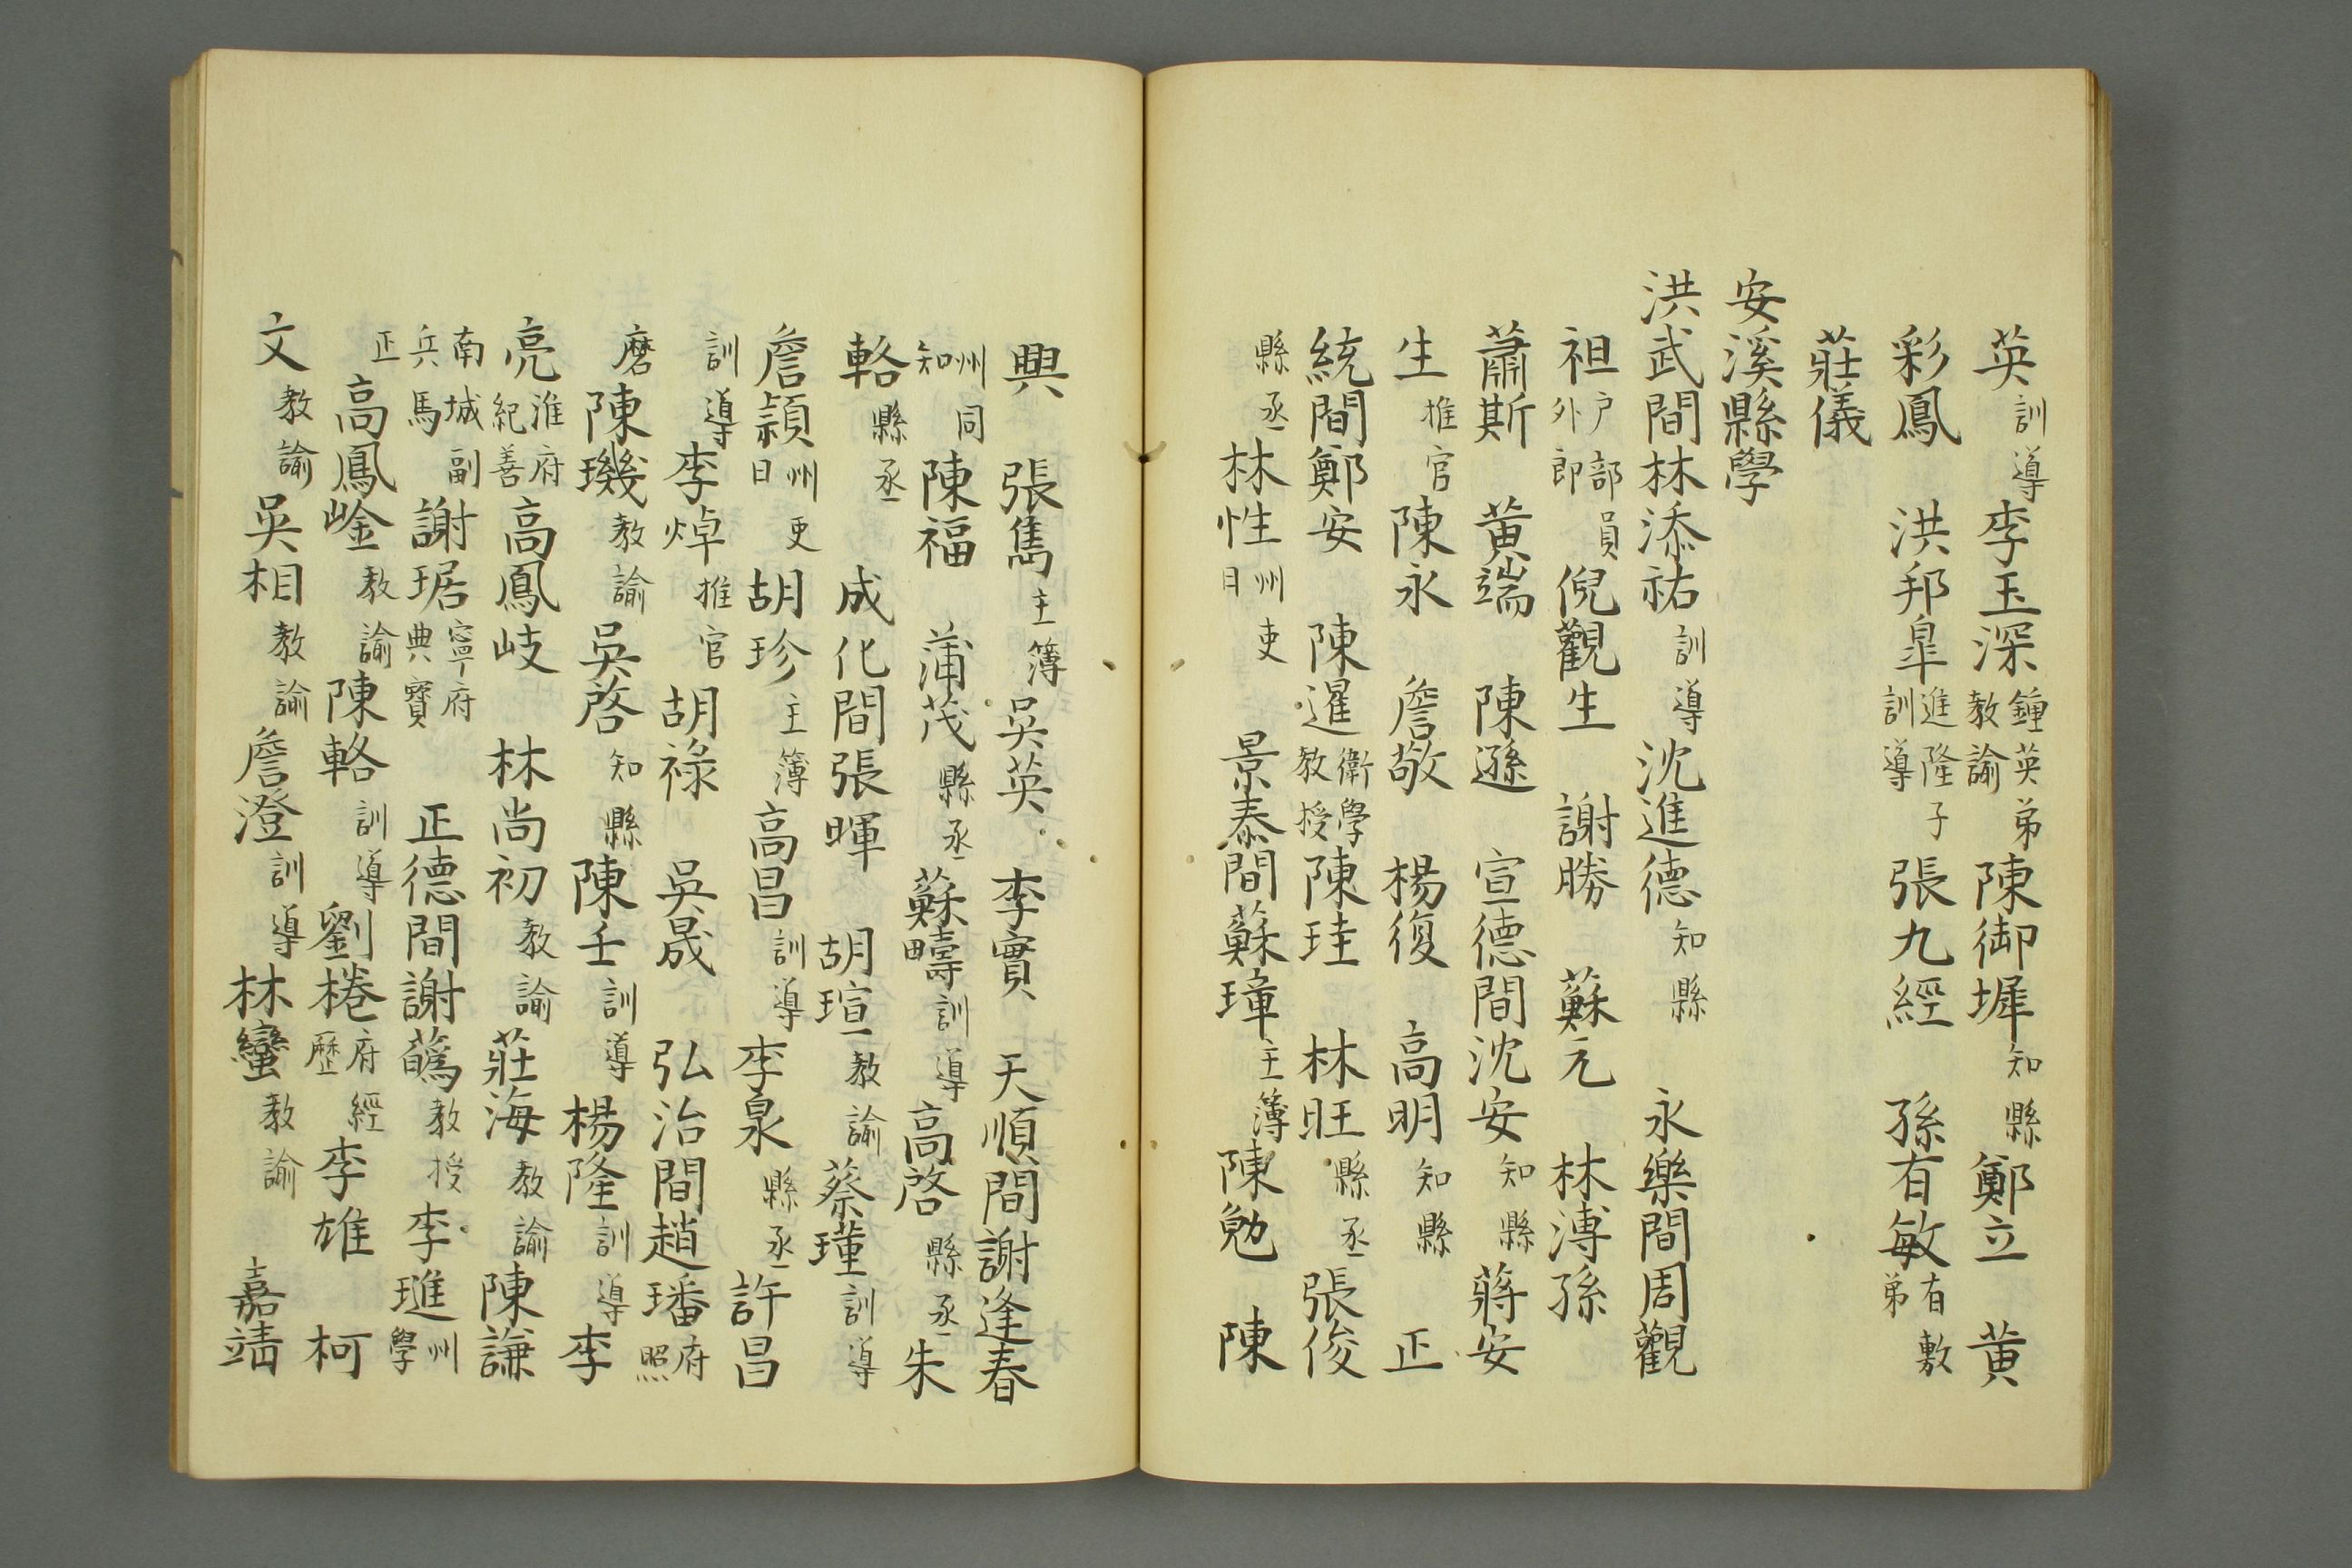 英訓導李玉深鍾英弟教諭陳御墀知縣鄭立黄
彩鳳洪邦臯進隆子訓導張九經孫有敏有敷弟
莊儀
安溪縣學
洪武間林添祐訓導沈進德知縣永樂間周觀
祖戶部員外郎倪觀生謝勝蘇元林溥孫
蕭斯黄端陳遜宣德間沈安知縣蔣安
生推官陳永詹敬楊復高明知縣正
統間鄭安陳暹衛學教授陳珪林旺縣丞張俊
縣丞林性州吏目景泰間蘇璋主簿陳勉陳
興張雋主簿吳英李實天順間謝逢春
州同知陳福蒲茂縣丞蘇疇訓導高啓縣丞朱
輅縣丞成化間張暉胡瑄教諭蔡瑾訓導
詹頴州吏目胡珍主簿高昌訓導李泉縣丞許昌
訓導李焯推官胡祿吳晟弘治間趙璠府照
磨陳璣教諭吳啓知縣陳壬訓導楊隆訓導李
亮淮府紀善高鳳岐林尚初教諭莊海教諭陳謙
南城副兵馬謝琚寧府典寶正德間謝蔿教授李璡州學
正高鳳崯教諭陳輅訓導劉棬府經歷李雄柯
文教諭吳相教諭詹澄訓導林蠻教諭嘉靖